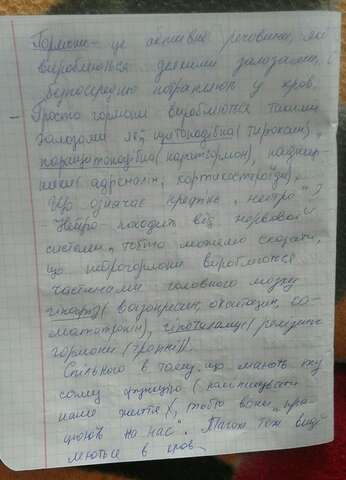 Гормони - це активні речовини, які
виробляються деякими залозами, і
безпосередньо потрапляють у кров.
- Просто гормони виробляються такими
залозами як, щитоподібна (тироксин),
паращитоподібна (паратгормон), наднир-
ники (адреналін, кортикостероїди).
Що означає префікс "нейро"?
Нейро - походить від нервової
системи, тобто можемо сказати,
що нейрогормони виробляються
частинами головного мозку
гіпофіз (вазопресин, окситоцин, со-
матотропін), гіпоталамус (рилізинг
гормони (
Спільного в тому, що мають таку
саму функцію (
наше життя), тобто вони "пра-
цюють на нас". Також теж виді-
ляються в кров.